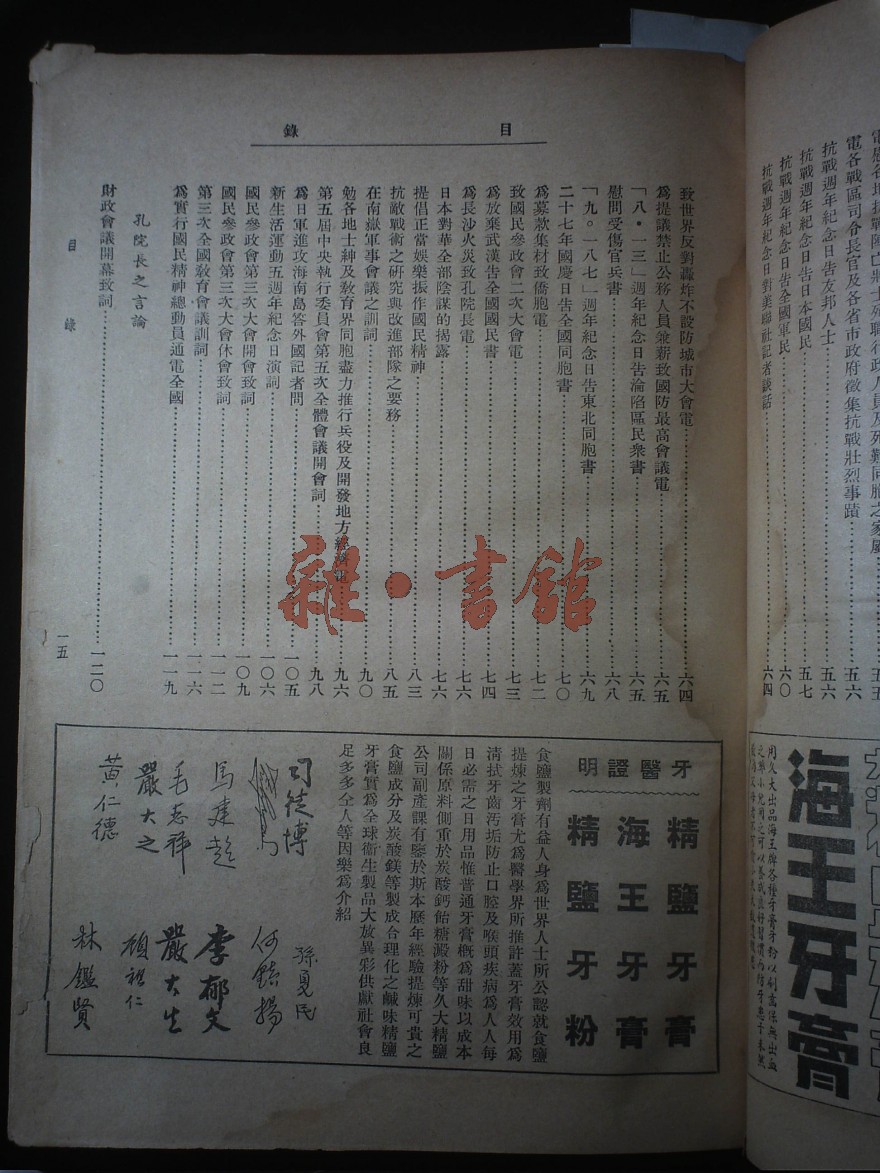 目錄
電各戰區司令長官及各省市政府徵集抗戰壯烈事蹟……五六
抗戰週年紀念日告友邦人士……五六
抗戰週年紀念日告日本國民……五七
抗戰週年紀念日告全國軍民……六〇
抗戰週年紀念日對美聯社記者談話……六四
海王牙膏
致世界反對轟炸不設防城市大會電……六四
為提議禁止公務人員兼薪致國防最高會議電……六五
「八・一三」週年紀念日告淪陷區民衆書……六五
慰問受傷官兵書……六八
「九・一八七」週年紀念日告東北同胞書……六九
二十七年國慶日告全國同胞書……七〇
為募款集材致僑胞電……七二
致國民參政會二次大會電……七三
為放棄武漢告全國國民書……七四
為長沙火災致孔院長電……七六
日本對華全部陰謀的揭露……七六
提倡正當娛樂振作國民精神……八三
抗敵戰術之研究與改進部隊之要務……八五
在南嶽軍事會議之訓詞……九〇
勉各地士紳及教育界同胞盡力推行兵役及開發地方經濟電……九六
第五屆中央執行委員會第五次全體會議開會詞……九八
為日軍進攻海南島答外國記者問……一〇五
新生活運動五週年紀念日演詞……一〇六
國民參政會第三次大會開會致詞……一〇九
國民參政會第三次大會休會致詞……一一二
第三次全國教育會議訓詞……一一六
為實行國民精神總動員通電全國……一一九
孔院長之言論
財政會議開幕致詞……一二〇
目錄
一五
牙醫證明
精鹽牙膏
海王牙膏
精鹽牙粉
食鹽製劑有益人身為世界人士所公認就食鹽
提煉之牙膏尤為醫學界所推許蓋牙膏效用為
清拭牙齒汚垢防止口腔及喉頭疾病為人人每
日必需之日用品惟普通牙膏概為甜味以成本
關係原料側重於炭酸鈣飴糖澱粉等久大精鹽
公司副產課有鑒於斯本歷年經驗提煉可貴之
食鹽成分及炭酸鎂等製成合理化之鹹味精鹽
牙膏實為全球衛生製品大放異彩供獻社會良
足多多仝人等因樂為介紹
司徒博
孫夏民
何鏡揚
馬建超
李郁文
毛志祥
嚴大生
嚴大之
顧祖仁
黃仁德
林鑑賢
雜・書館